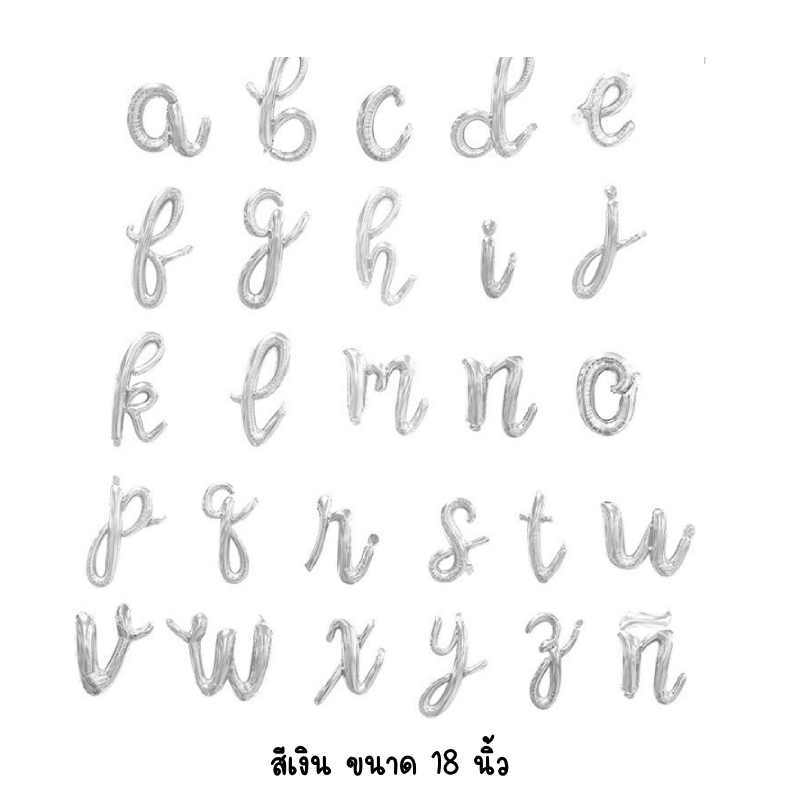 a b c d e
f g h i j
k l m n o
p q r s t u
v w x y z ñ
สีเงิน ขนาด 18 นิ้ว